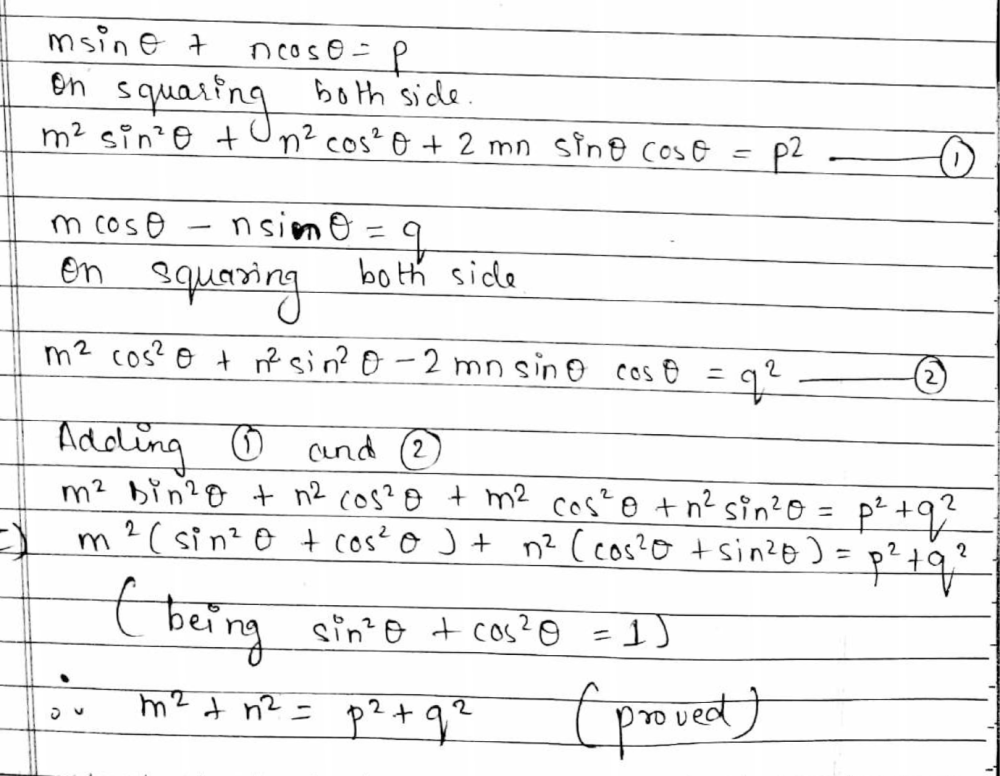 m sin θ + n cos θ = p
On squaring both side.
m² sin² θ + n² cos² θ + 2 mn sin θ cos θ = p² —— ①
m cos θ – n sin θ = q
On squaring both side
m² cos² θ + n² sin² θ – 2 mn sin θ cos θ = q² —— ②
Adding ① and ②
m² sin² θ + n² cos² θ + m² cos² θ + n² sin² θ = p² + q²
⇒ m² (sin² θ + cos² θ) + n² (cos² θ + sin² θ) = p² + q²
(being sin² θ + cos² θ = 1)
∴ m² + n² = p² + q² (proved)